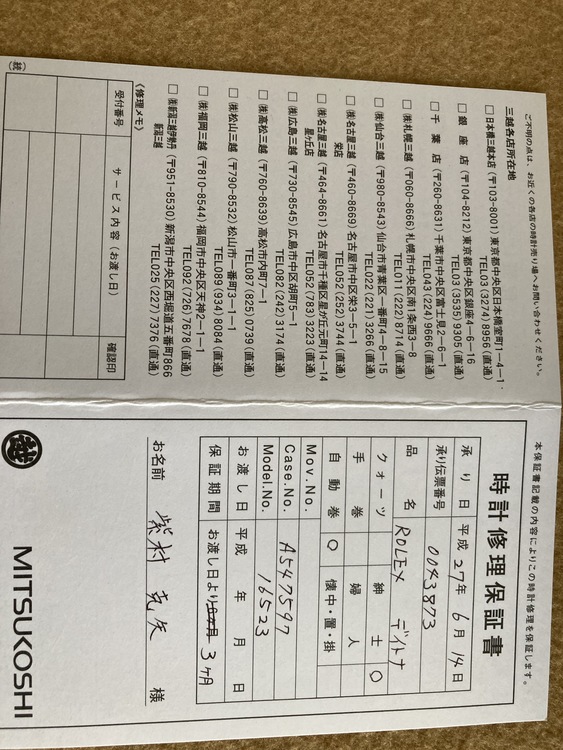 本保証書記載の内容によりこの時計修理を保証します。
時計修理保証書
承り日 平成27年6月14日
承り伝票番号 0043873
品名 ROLEX デイトナ
クォーツ 紳士 ○
手巻 婦人
自動巻 ○ 懐中・置・掛
Mov.No.
Case.No. A547597
Model.No. 16523
お渡し日 平成 年 月 日
保証期間 お渡し日より6ヶ月 3ヶ月
お名前 紫村 克矢 様
MITSUKOSHI
ご不明の点は、お近くの各店の時計売り場へお問い合わせください。
三越各店所在地
□ 日本橋三越本店 (〒103−8001) 東京都中央区日本橋室町1−4−1・
TEL03(3274)8956(直通)
□ 銀座店 (〒104−8212) 東京都中央区銀座4−6−16
TEL03(3535)9305(直通)
□ 千葉店 (〒260−8631) 千葉市中央区富士見2−6−1
TEL043(224)9666(直通)
□ ㈱札幌三越 (〒060−8666) 札幌市中央区南1条西3−8
TEL011(222)8714(直通)
□ ㈱仙台三越 (〒980−8543) 仙台市青葉区一番町4−8−15
TEL022(221)3266(直通)
□ ㈱名古屋三越 栄店 (〒460−8669) 名古屋市中区栄3−5−1
TEL052(252)3744(直通)
□ ㈱名古屋三越 星ヶ丘店 (〒464−8661) 名古屋市千種区星が丘元町14−14
TEL052(783)3223(直通)
□ ㈱広島三越 (〒730−8545) 広島市中区胡町5−1
TEL082(242)3174(直通)
□ ㈱高松三越 (〒760−8639) 高松市内町7−1
TEL087(825)0739(直通)
□ ㈱松山三越 (〒790−8532) 松山市一番町3−1−1
TEL089(934)8084(直通)
□ ㈱福岡三越 (〒810−8544) 福岡市中央区天神2−1−1
TEL092(726)7678(直通)
□ ㈱新潟三越伊勢丹 新潟三越 (〒951−8530) 新潟市中央区西堀通五番町866
TEL025(227)7376(直通)
《修理メモ》
受付番号 サービス内容(お渡し日) 確認印